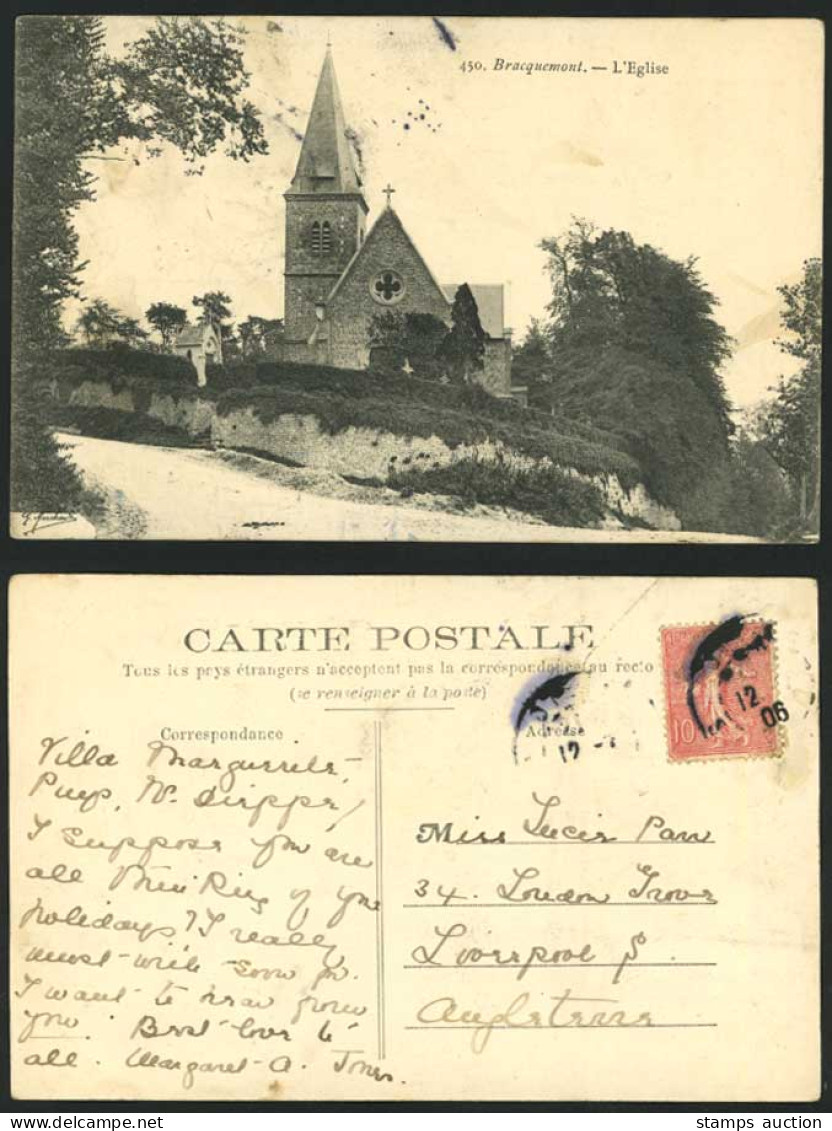 450. Bracquemont. — L'Eglise
CARTE POSTALE
Tous les pays étrangers n'acceptent pas la correspondance au recto
(se renseigner à la poste)
Correspondance
Adresse
10
12
06
12
Villa Marguerite,
Puys, Nr. Dieppe,
I suppose you are
all thinking of your
holidays? I really
must write soon for
I want to hear from
you. Best love to
all. Margaret A. Jones.
Miss Lucie Parr
34. London Grove
Liverpool S.
Angleterre
stamps auction